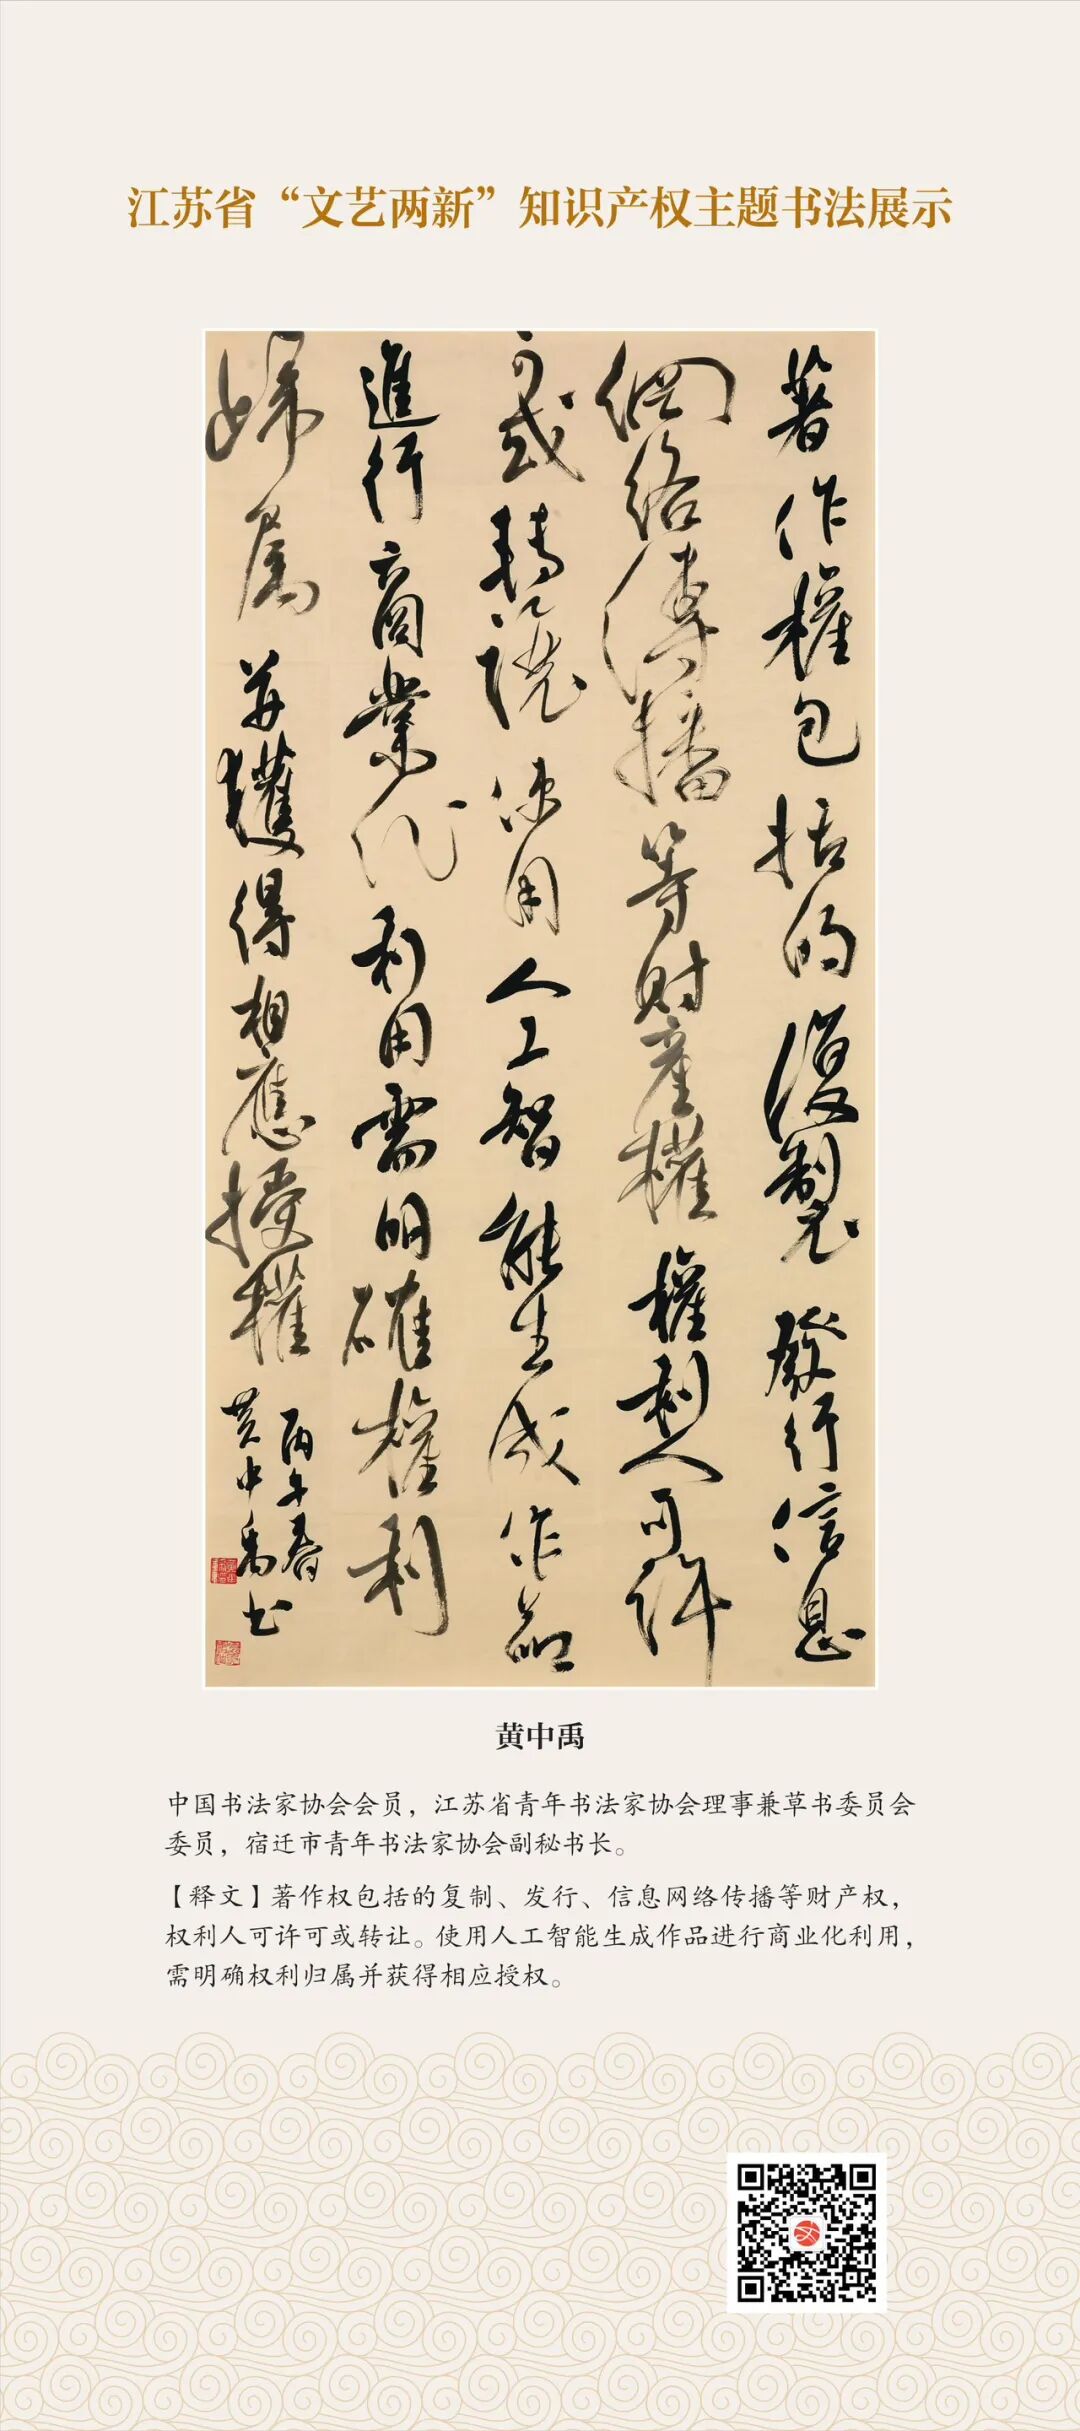 江苏省“文艺两新”知识产权主题书法展示
著作權包括的復製發行信息
網絡傳播等財產權權利人可許
可或轉讓使用人工智能生成作品
進行商業化利用需明確權利
歸属並獲得相應授權
丙午春
黄中禹书
黄中禹
中国书法家协会会员，江苏省青年书法家协会理事兼草书委员会
委员，宿迁市青年书法家协会副秘书长。
【释文】著作权包括的复制、发行、信息网络传播等财产权，
权利人可许可或转让。使用人工智能生成作品进行商业化利用，
需明确权利归属并获得相应授权。